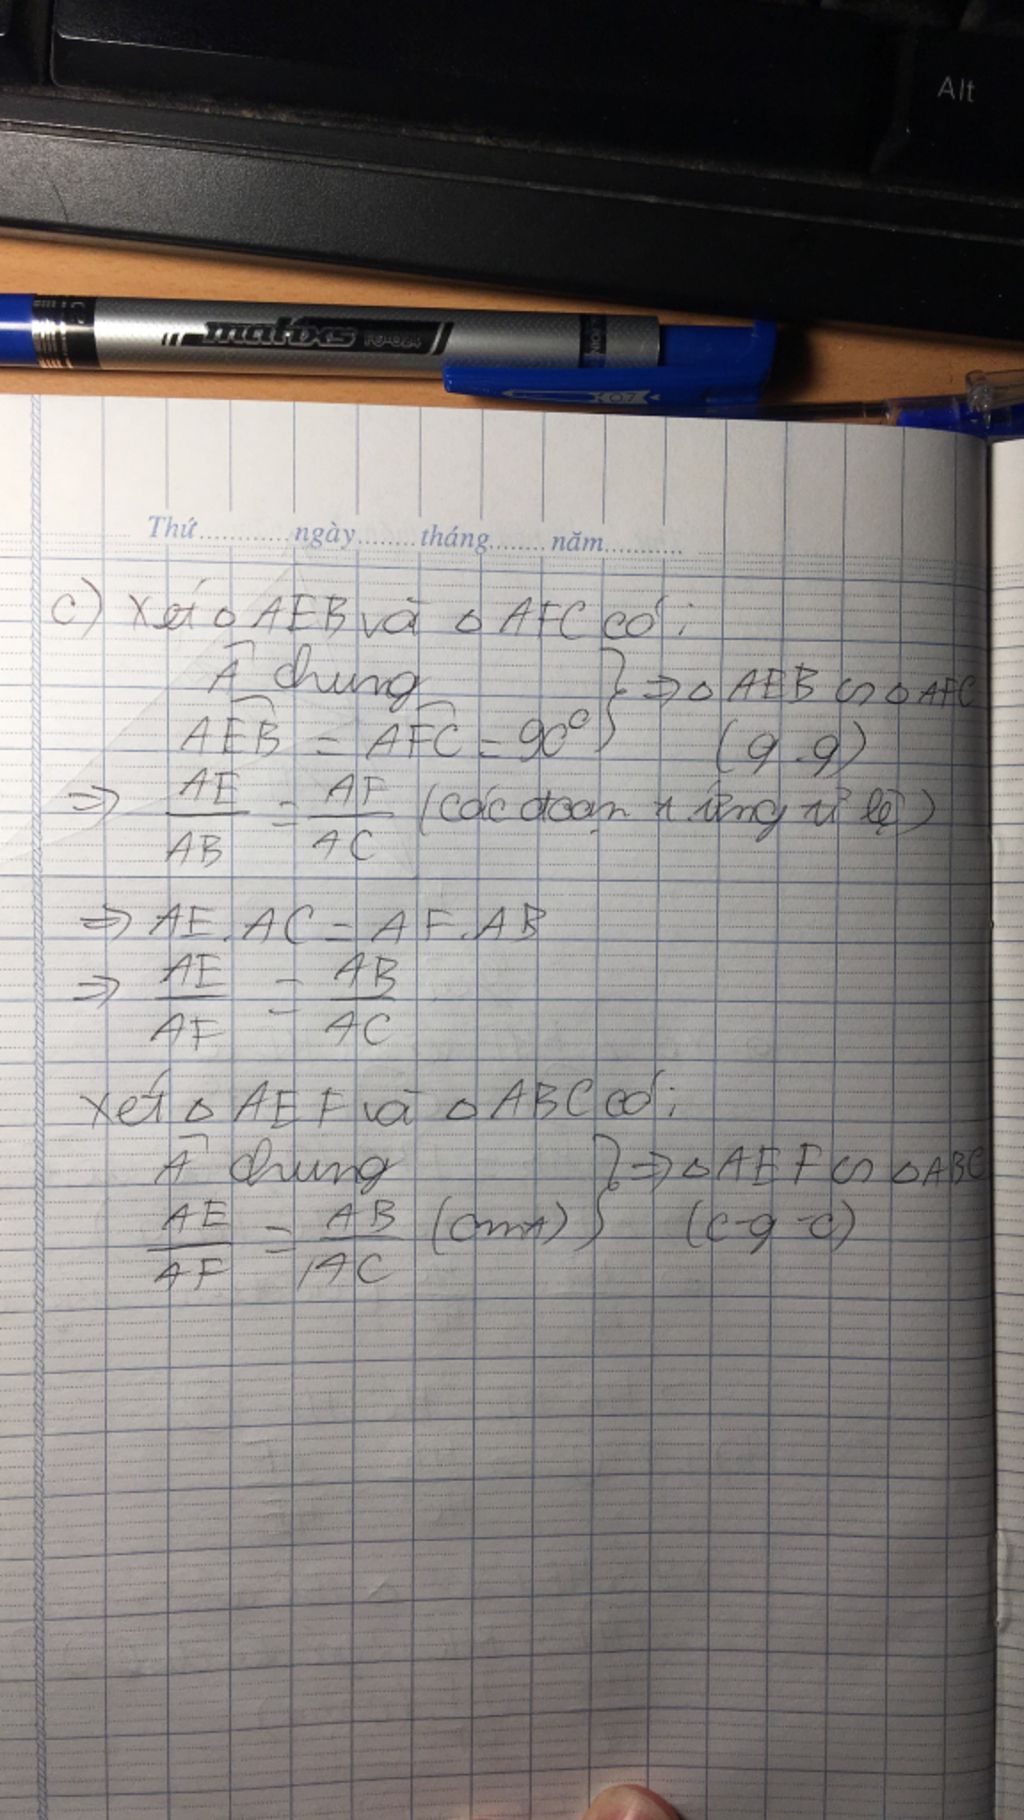 Alt
matixs FO-024
07
Thứ............ngày........tháng........năm...........
c) Xét △ AEB và △ AFC có:
Â chung } ⇒ △ AEB ∽ △ AFC
AEB̂ = AFĈ = 90° (g.g)
⇒ AE/AB = AF/AC (các đoạn t.ứng tỉ lệ)
⇒ AE.AC = AF.AB
⇒ AE/AF = AB/AC
Xét △ AEF và △ ABC có:
Â chung } ⇒ △ AEF ∽ △ ABC
AE/AF = AB/AC (cmt) (c-g-c)